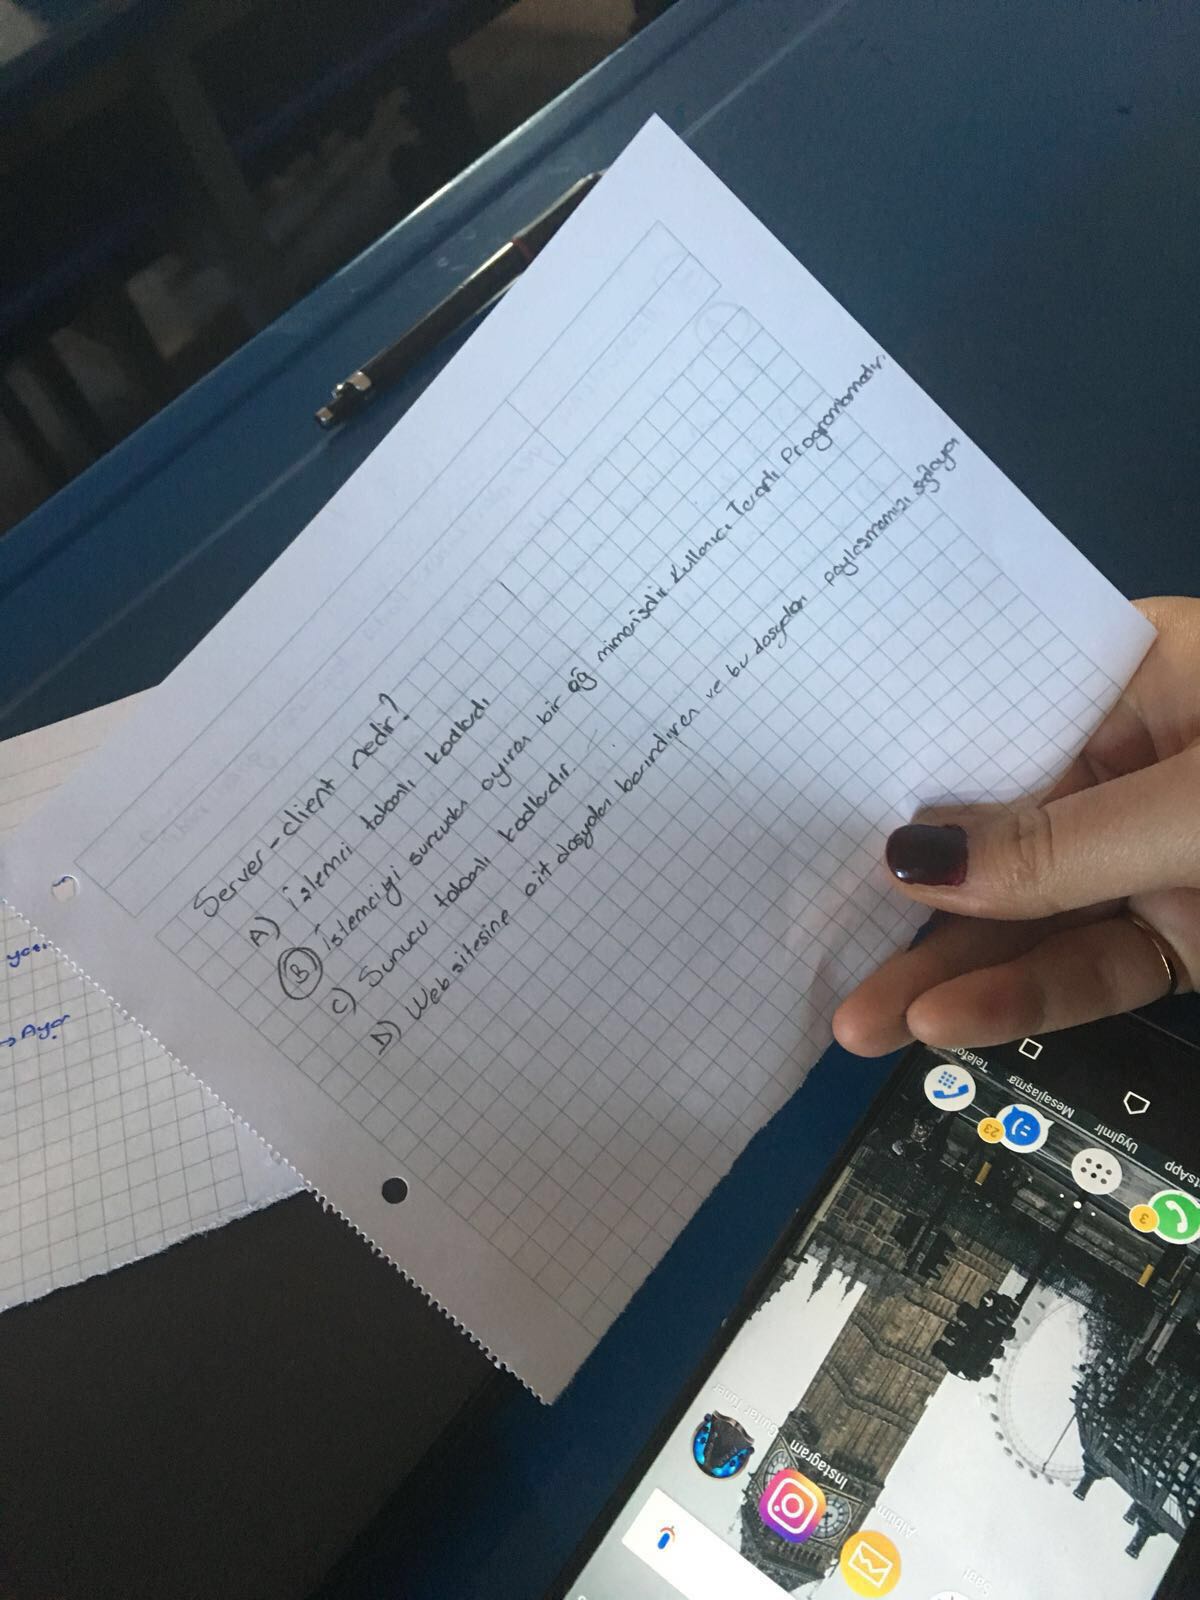 Server-client nedir?
A) İstemci tabanlı kodlardı
B) İstemciyi sunucudan ayıran bir ağ mimarisidir. Kullanıcı Taraflı Programlamadır.
C) Sunucu tabanlı kodlardır.
D) Web sitesine ait dosyaları barındıran ve bu dosyaları paylaşmamızı sağlayan
→ Ayar
Telefon
Mesajlaşma
Uyglmlr
tsApp
23
3
Guitar Tuner
Instagram
Albüm